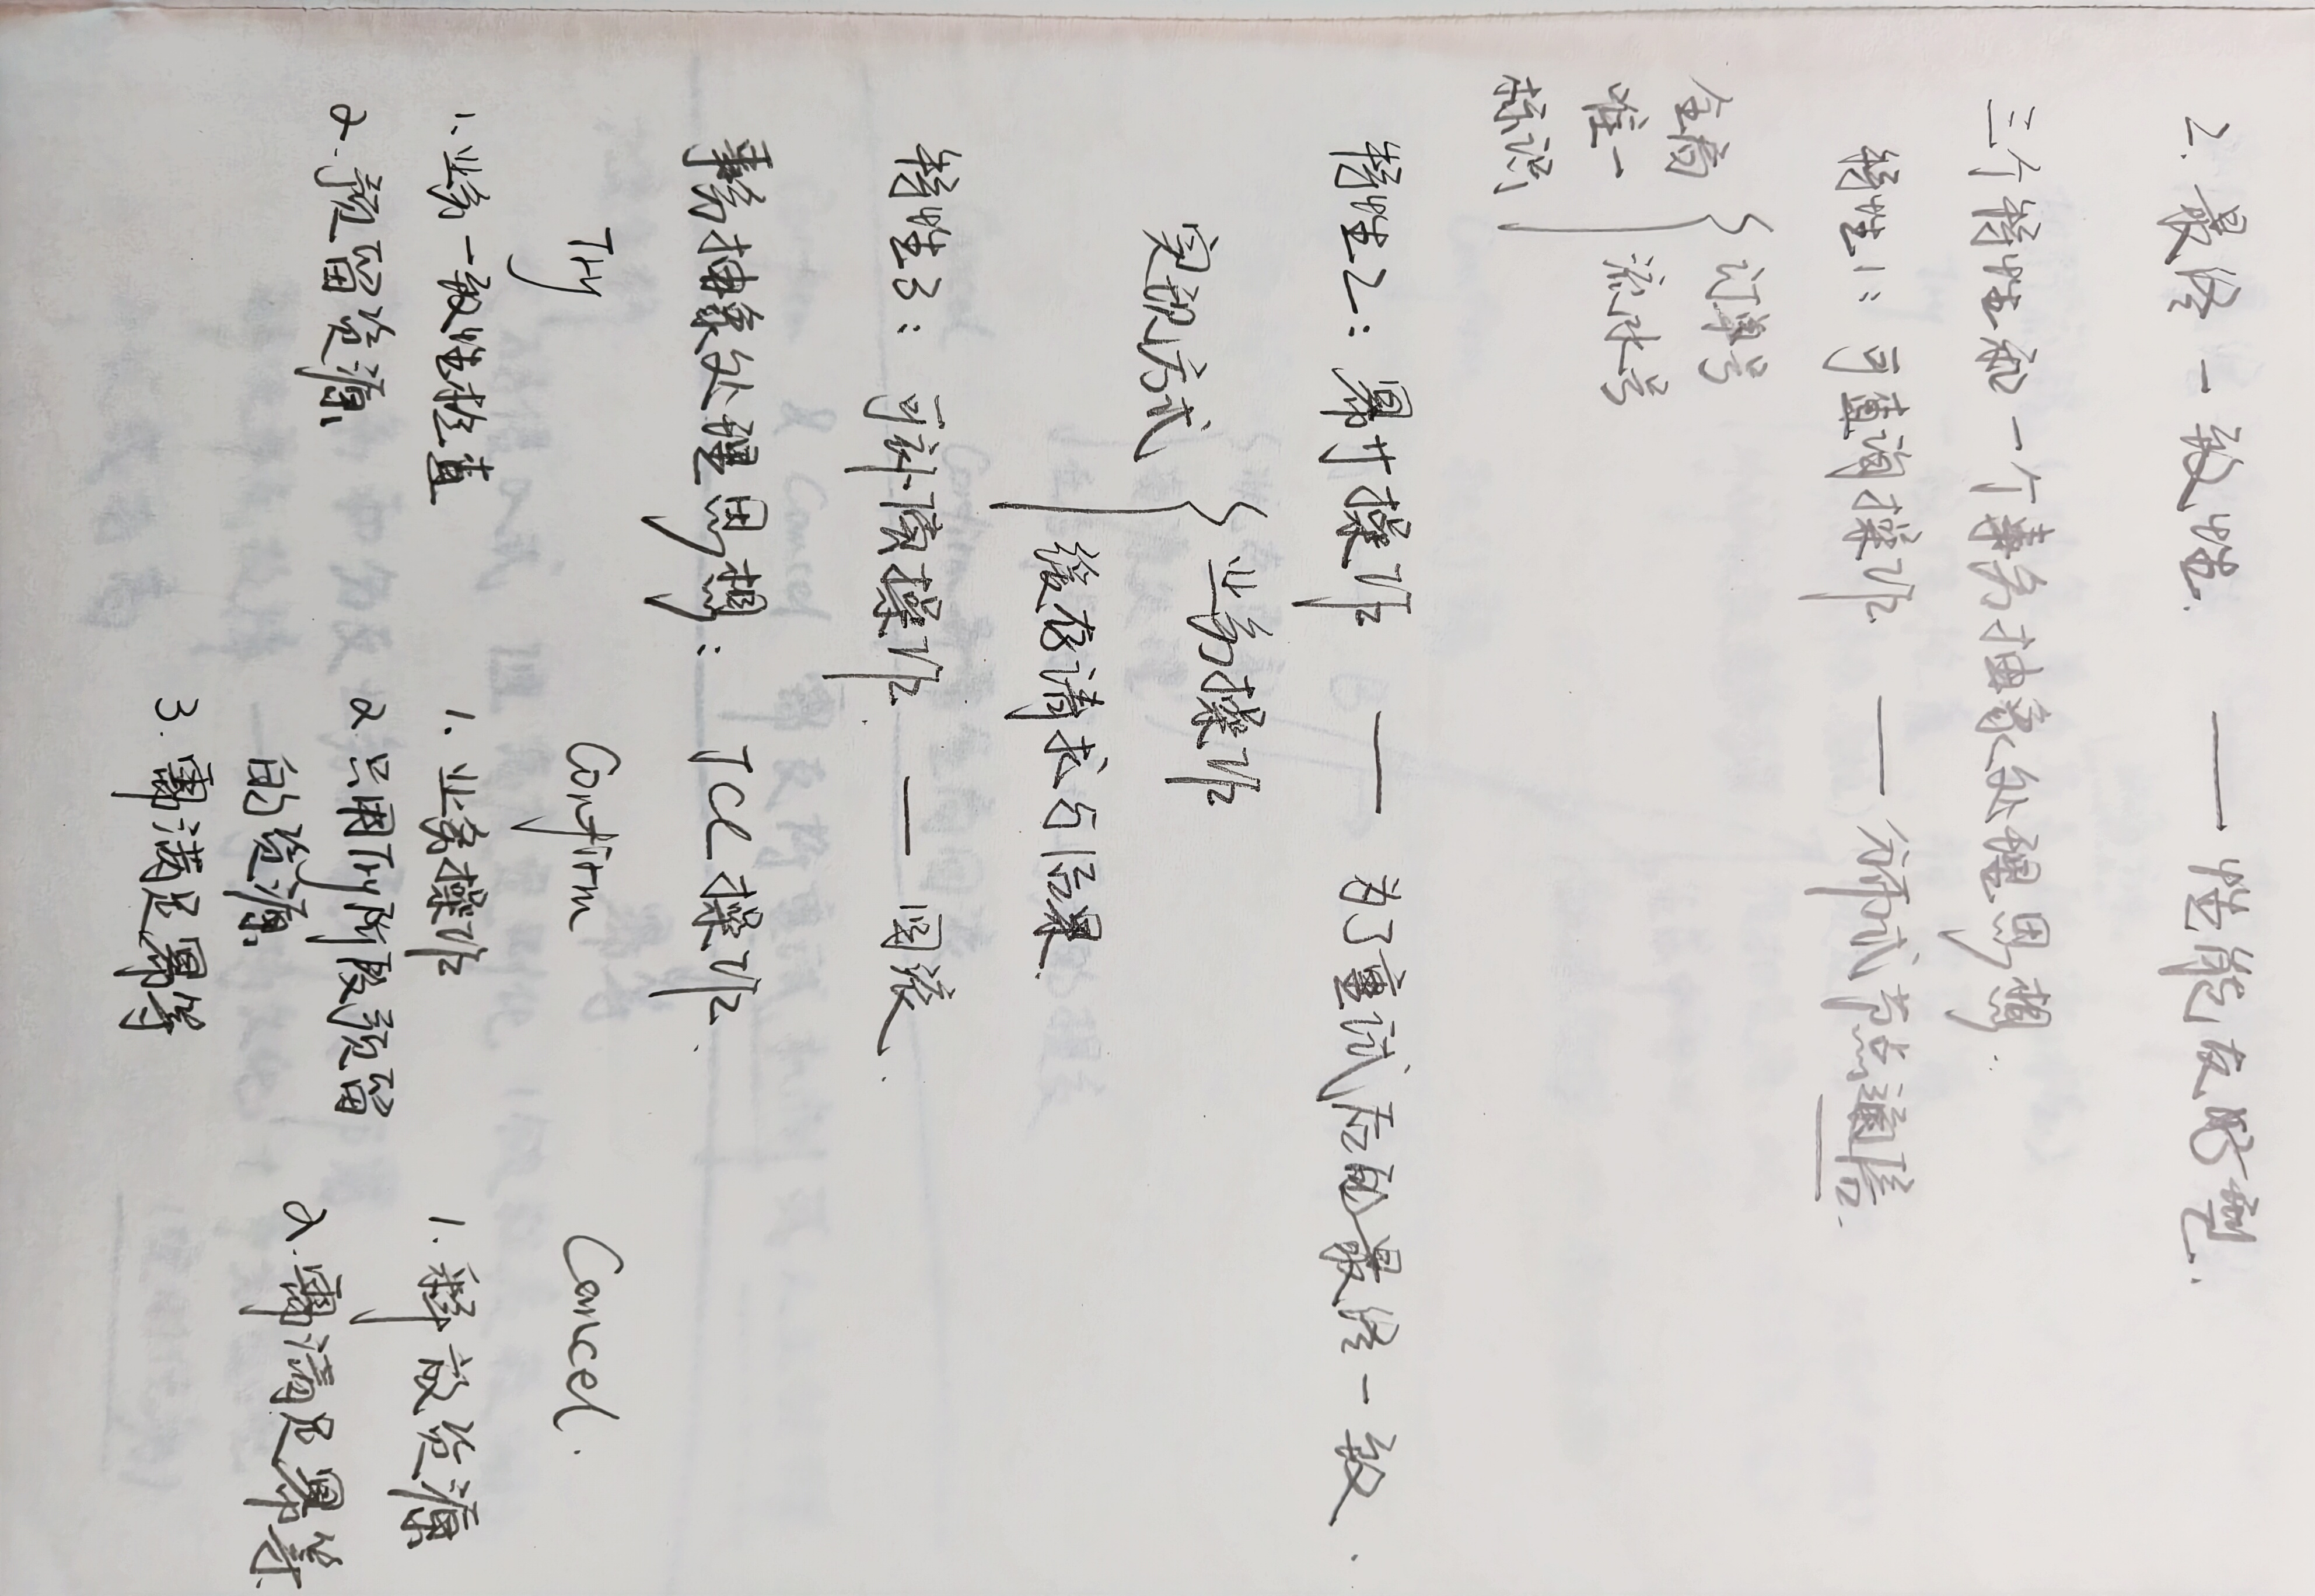 2. 最终一致性. — 性能友好型.
三个特性和一个事务抽象处理思想.
特性1: 可查询操作 — 分布式节点通信.
全局唯一标识 { 订单号
流水号
特性2: 幂等操作 — 为了重试后的最终一致.
实现方式 { 业务操作
缓存请求与结果.
特性3: 可补偿操作. — 回滚.
事务抽象处理思想: TCC操作.
Try Confirm Cancel.
1. 业务一致性检查
2. 预留资源
1. 业务操作
2. 只用Try阶段预留
的资源
3. 需满足幂等
1. 释放资源
2. 需满足幂等.